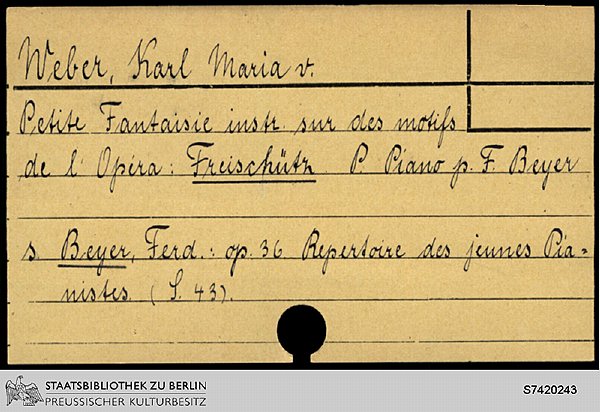 Weber, Karl Maria v.
Petite Fantaisie instr. sur des motifs
de l'Opéra: Freischütz. P. Piano p. F. Beyer
s. Beyer, Ferd.: op. 36 Repertoire des jeunes Pia-
nistes. (S. 43).
STAATSBIBLIOTHEK ZU BERLIN
PREUSSISCHER KULTURBESITZ
S7420243